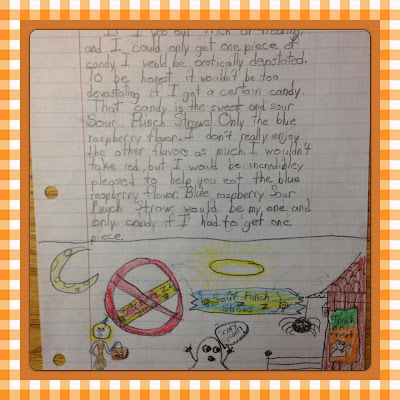 and I could only get one piece of
candy I would be devastated.
To be honest it wouldn't be too
devastating if I got a certain candy.
That candy is the sweet and sour
Sour Punch Straws! Only the blue
raspberry flavor. I don't really enjoy
the other flavors as much. I wouldn't
take red, but I would be incredibley
pleased to help you eat the blue
raspberry flavor. Blue raspberry Sour
Punch Straws would be my one and
only candy if I had to get one
piece.
Sour Punch
Straws